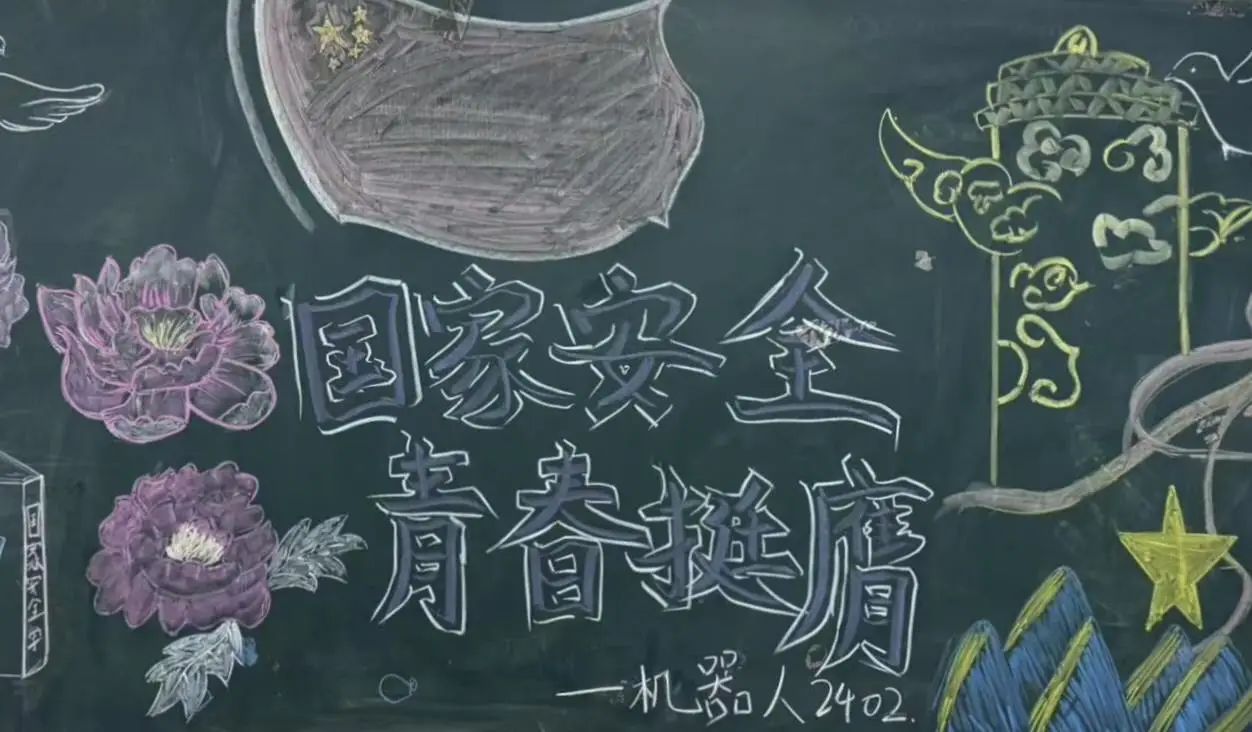 国家安全
青春挺膺
一机器人2402.
国家安全